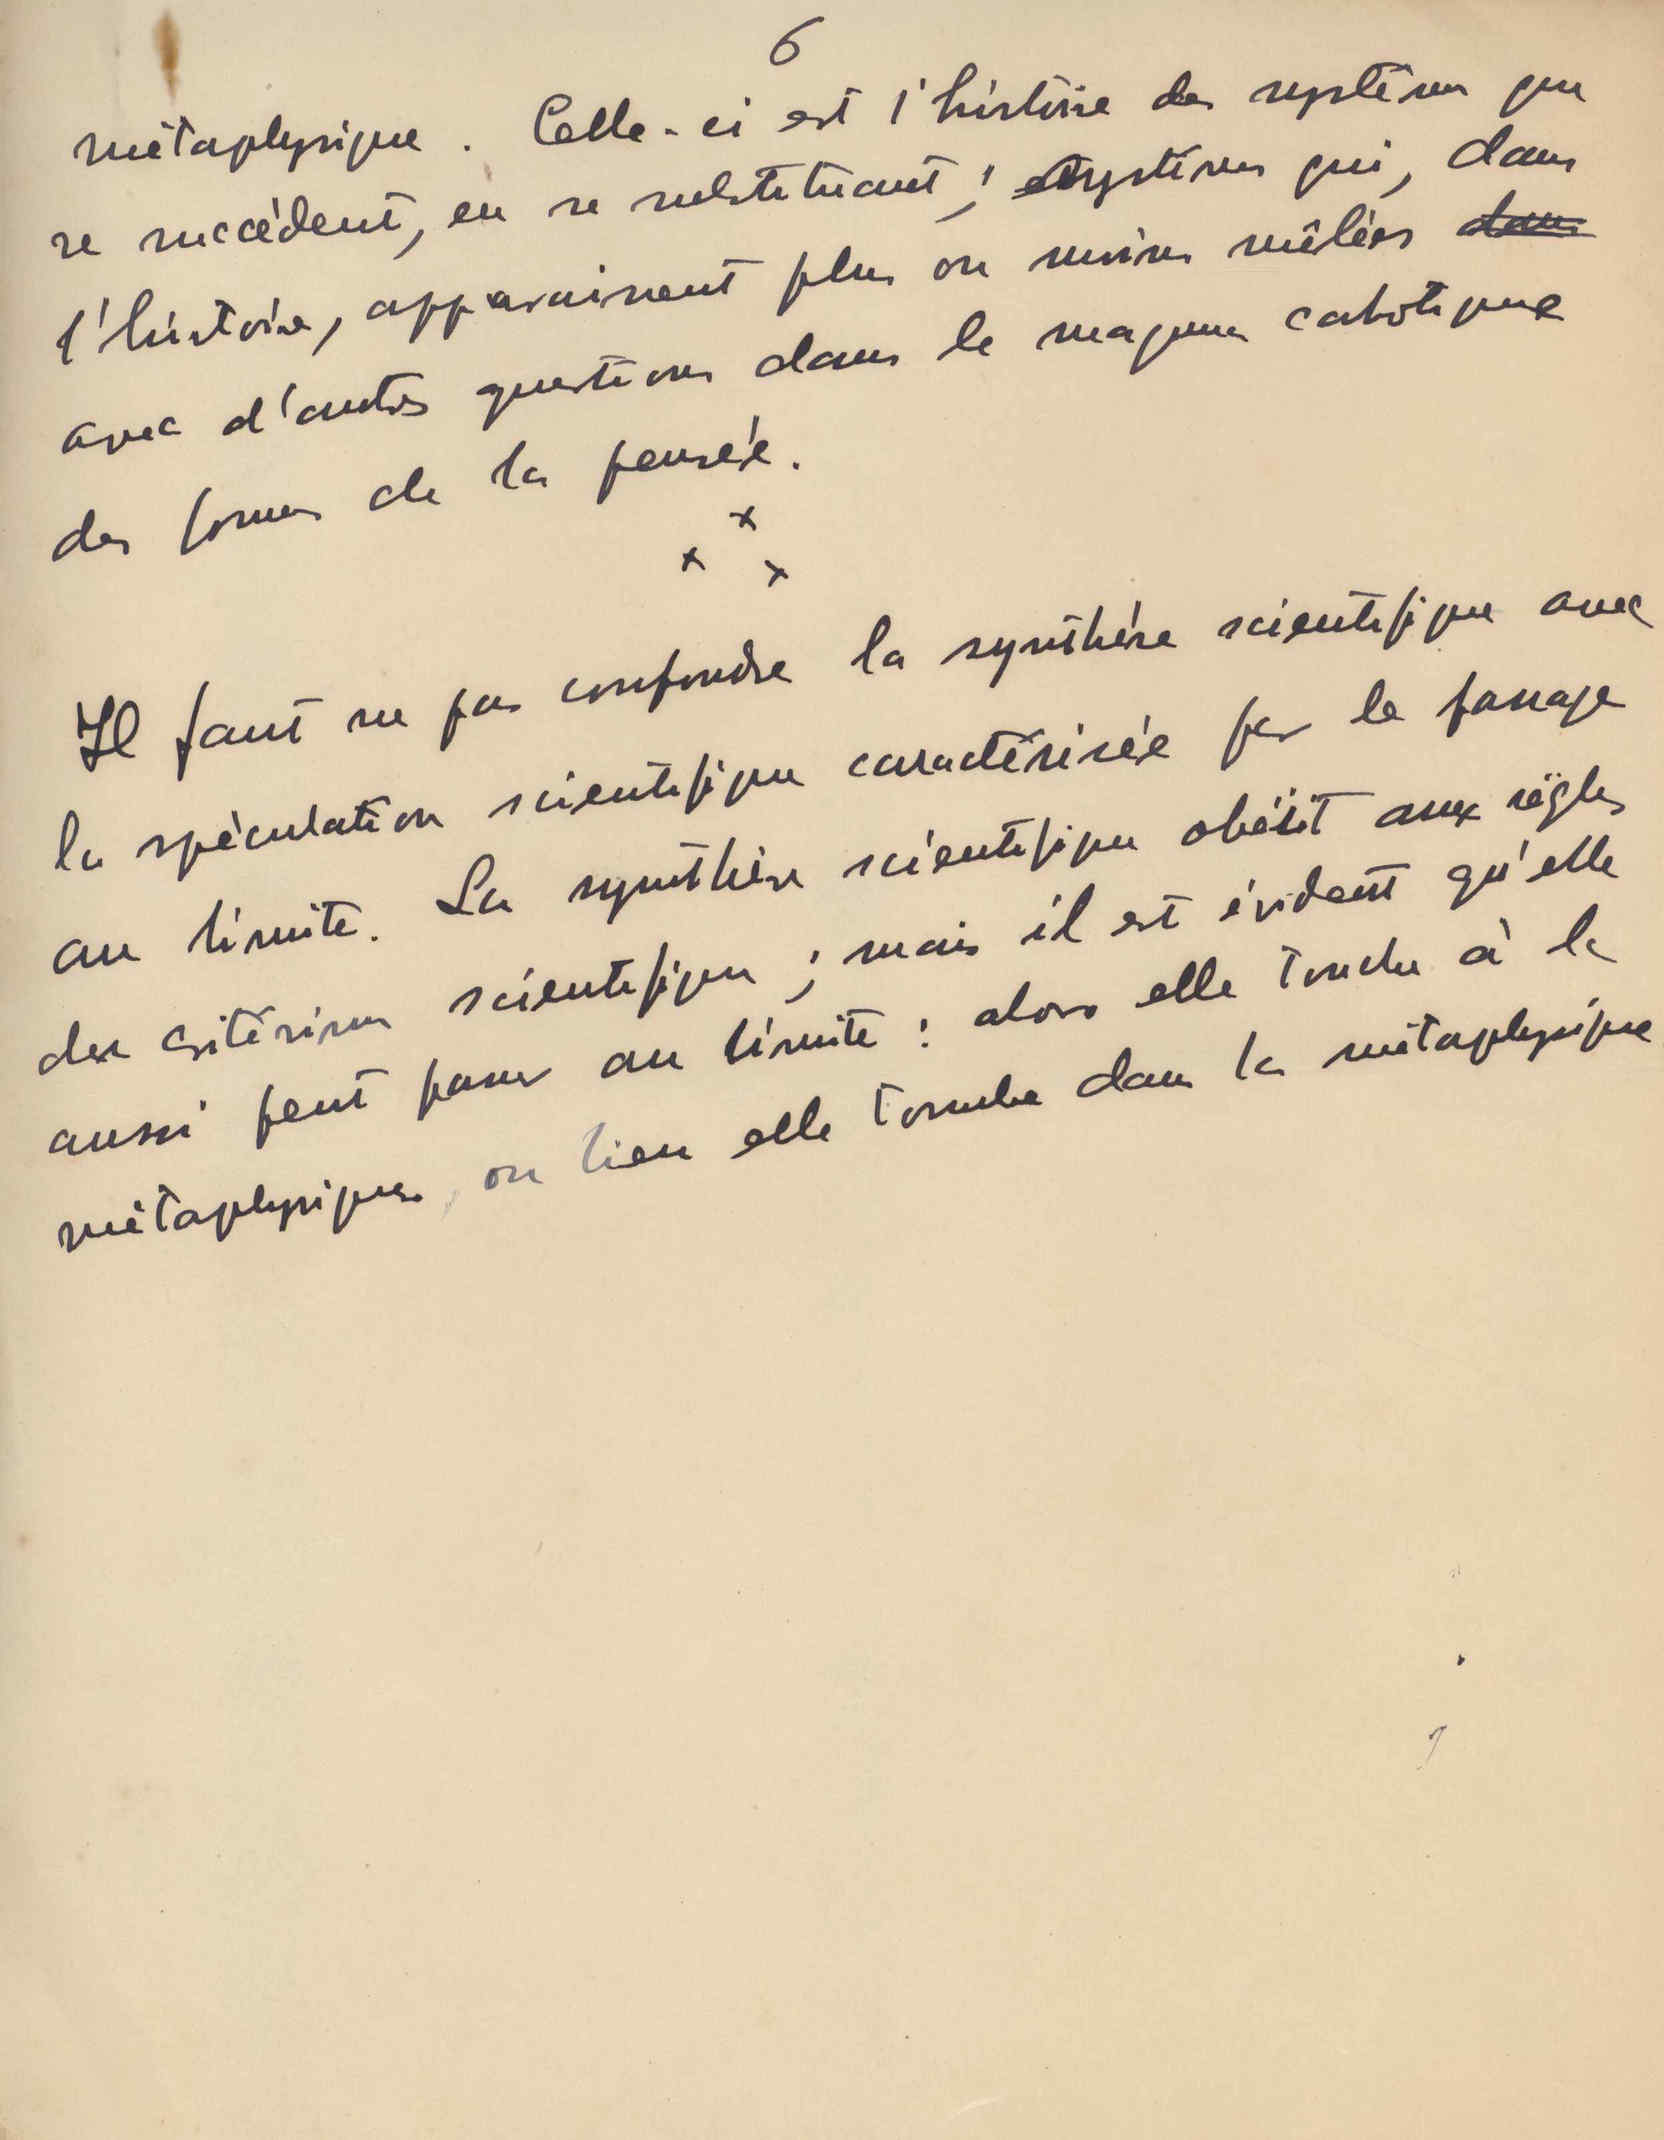 6
métaphysique. Celle-ci est l'histoire des systèmes que
se succèdent, en se substituant ; systèmes qui, dans
l'histoire, apparaissent plus ou moins mêlées dans
avec d'autres questions dans le magma cahotique
des formes de la pensée.
x
x x
Il faut ne pas confondre la synthèse scientifique avec
la spéculation scientifique caractérisée par le passage
au limite. La synthèse scientifique obéit aux règles
des critérium scientifique ; mais il est évident qu'elle
aussi peut passer au limite : alors elle touche à la
métaphysique, ou bien elle tombe dans la métaphysique